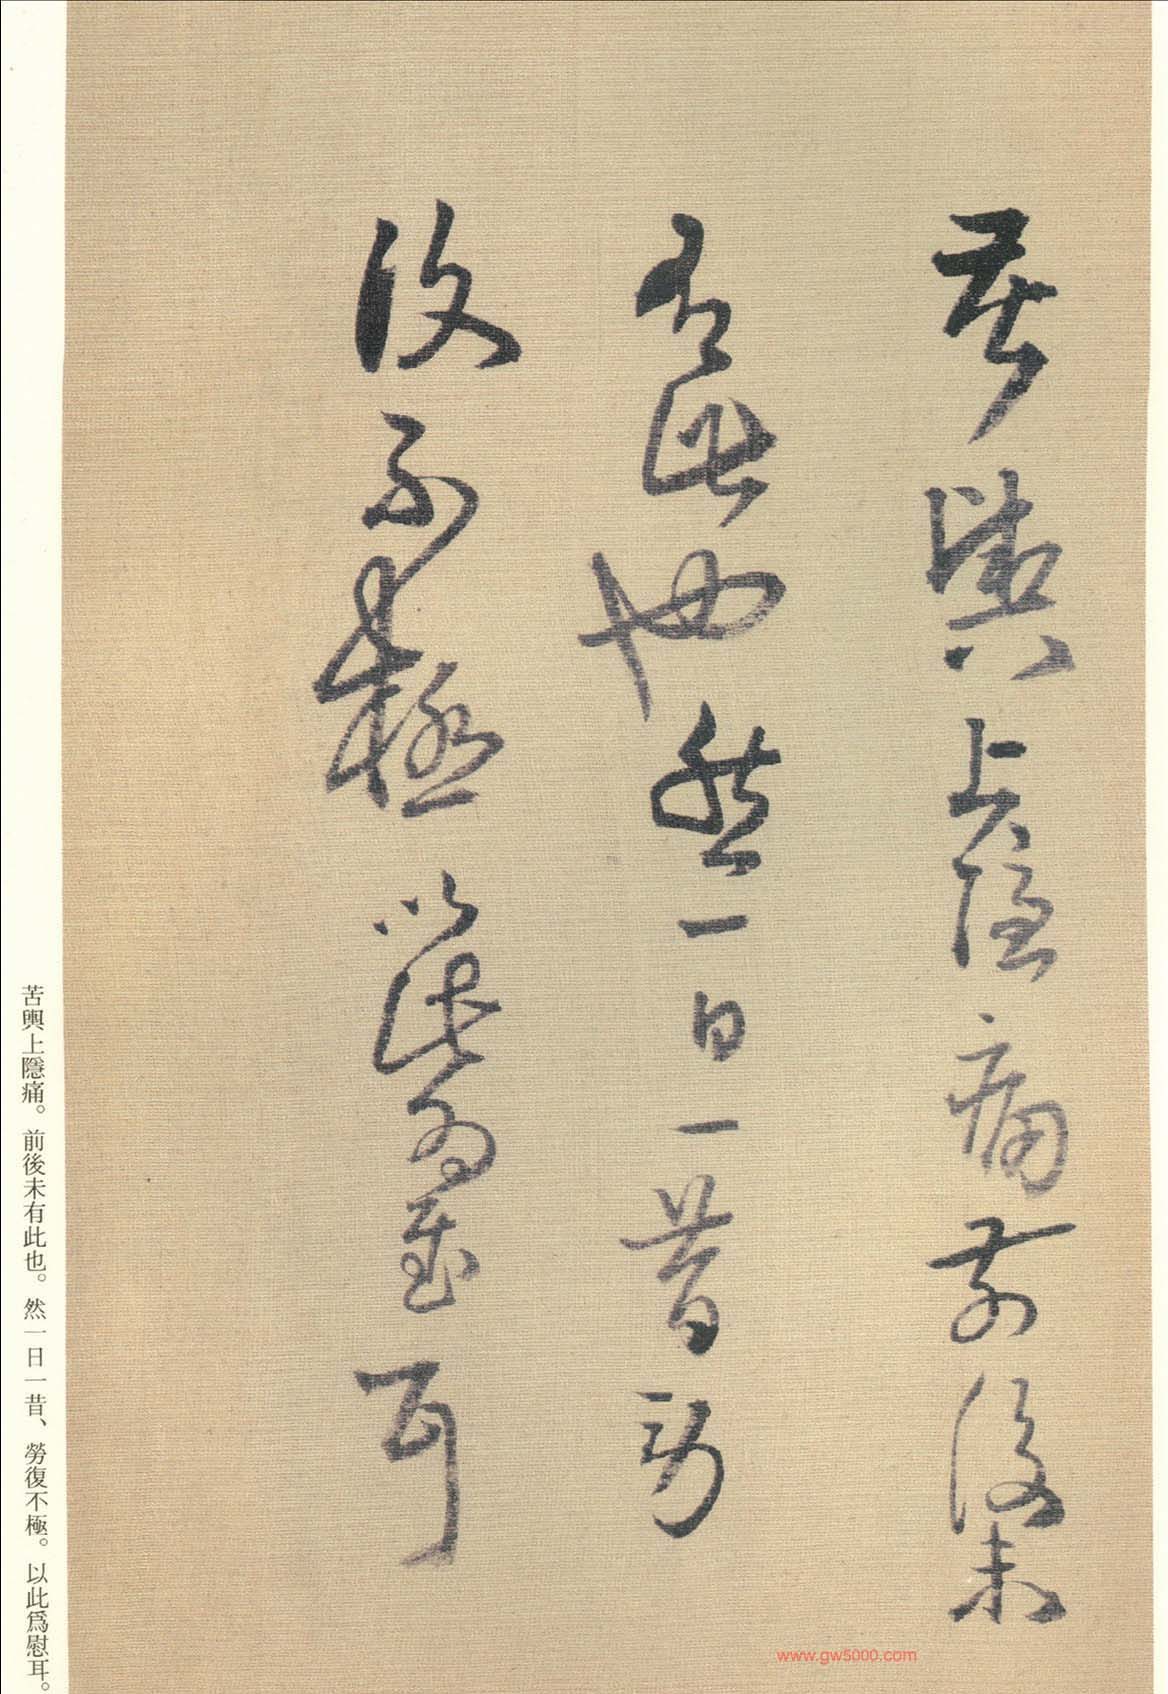 苦興上隱痛前後未
有此也然一日一昔勞
復不極以此為慰耳
苦興上隱痛。前後未有此也。然一日一昔、勞復不極。以此爲慰耳。
www.gw5000.com